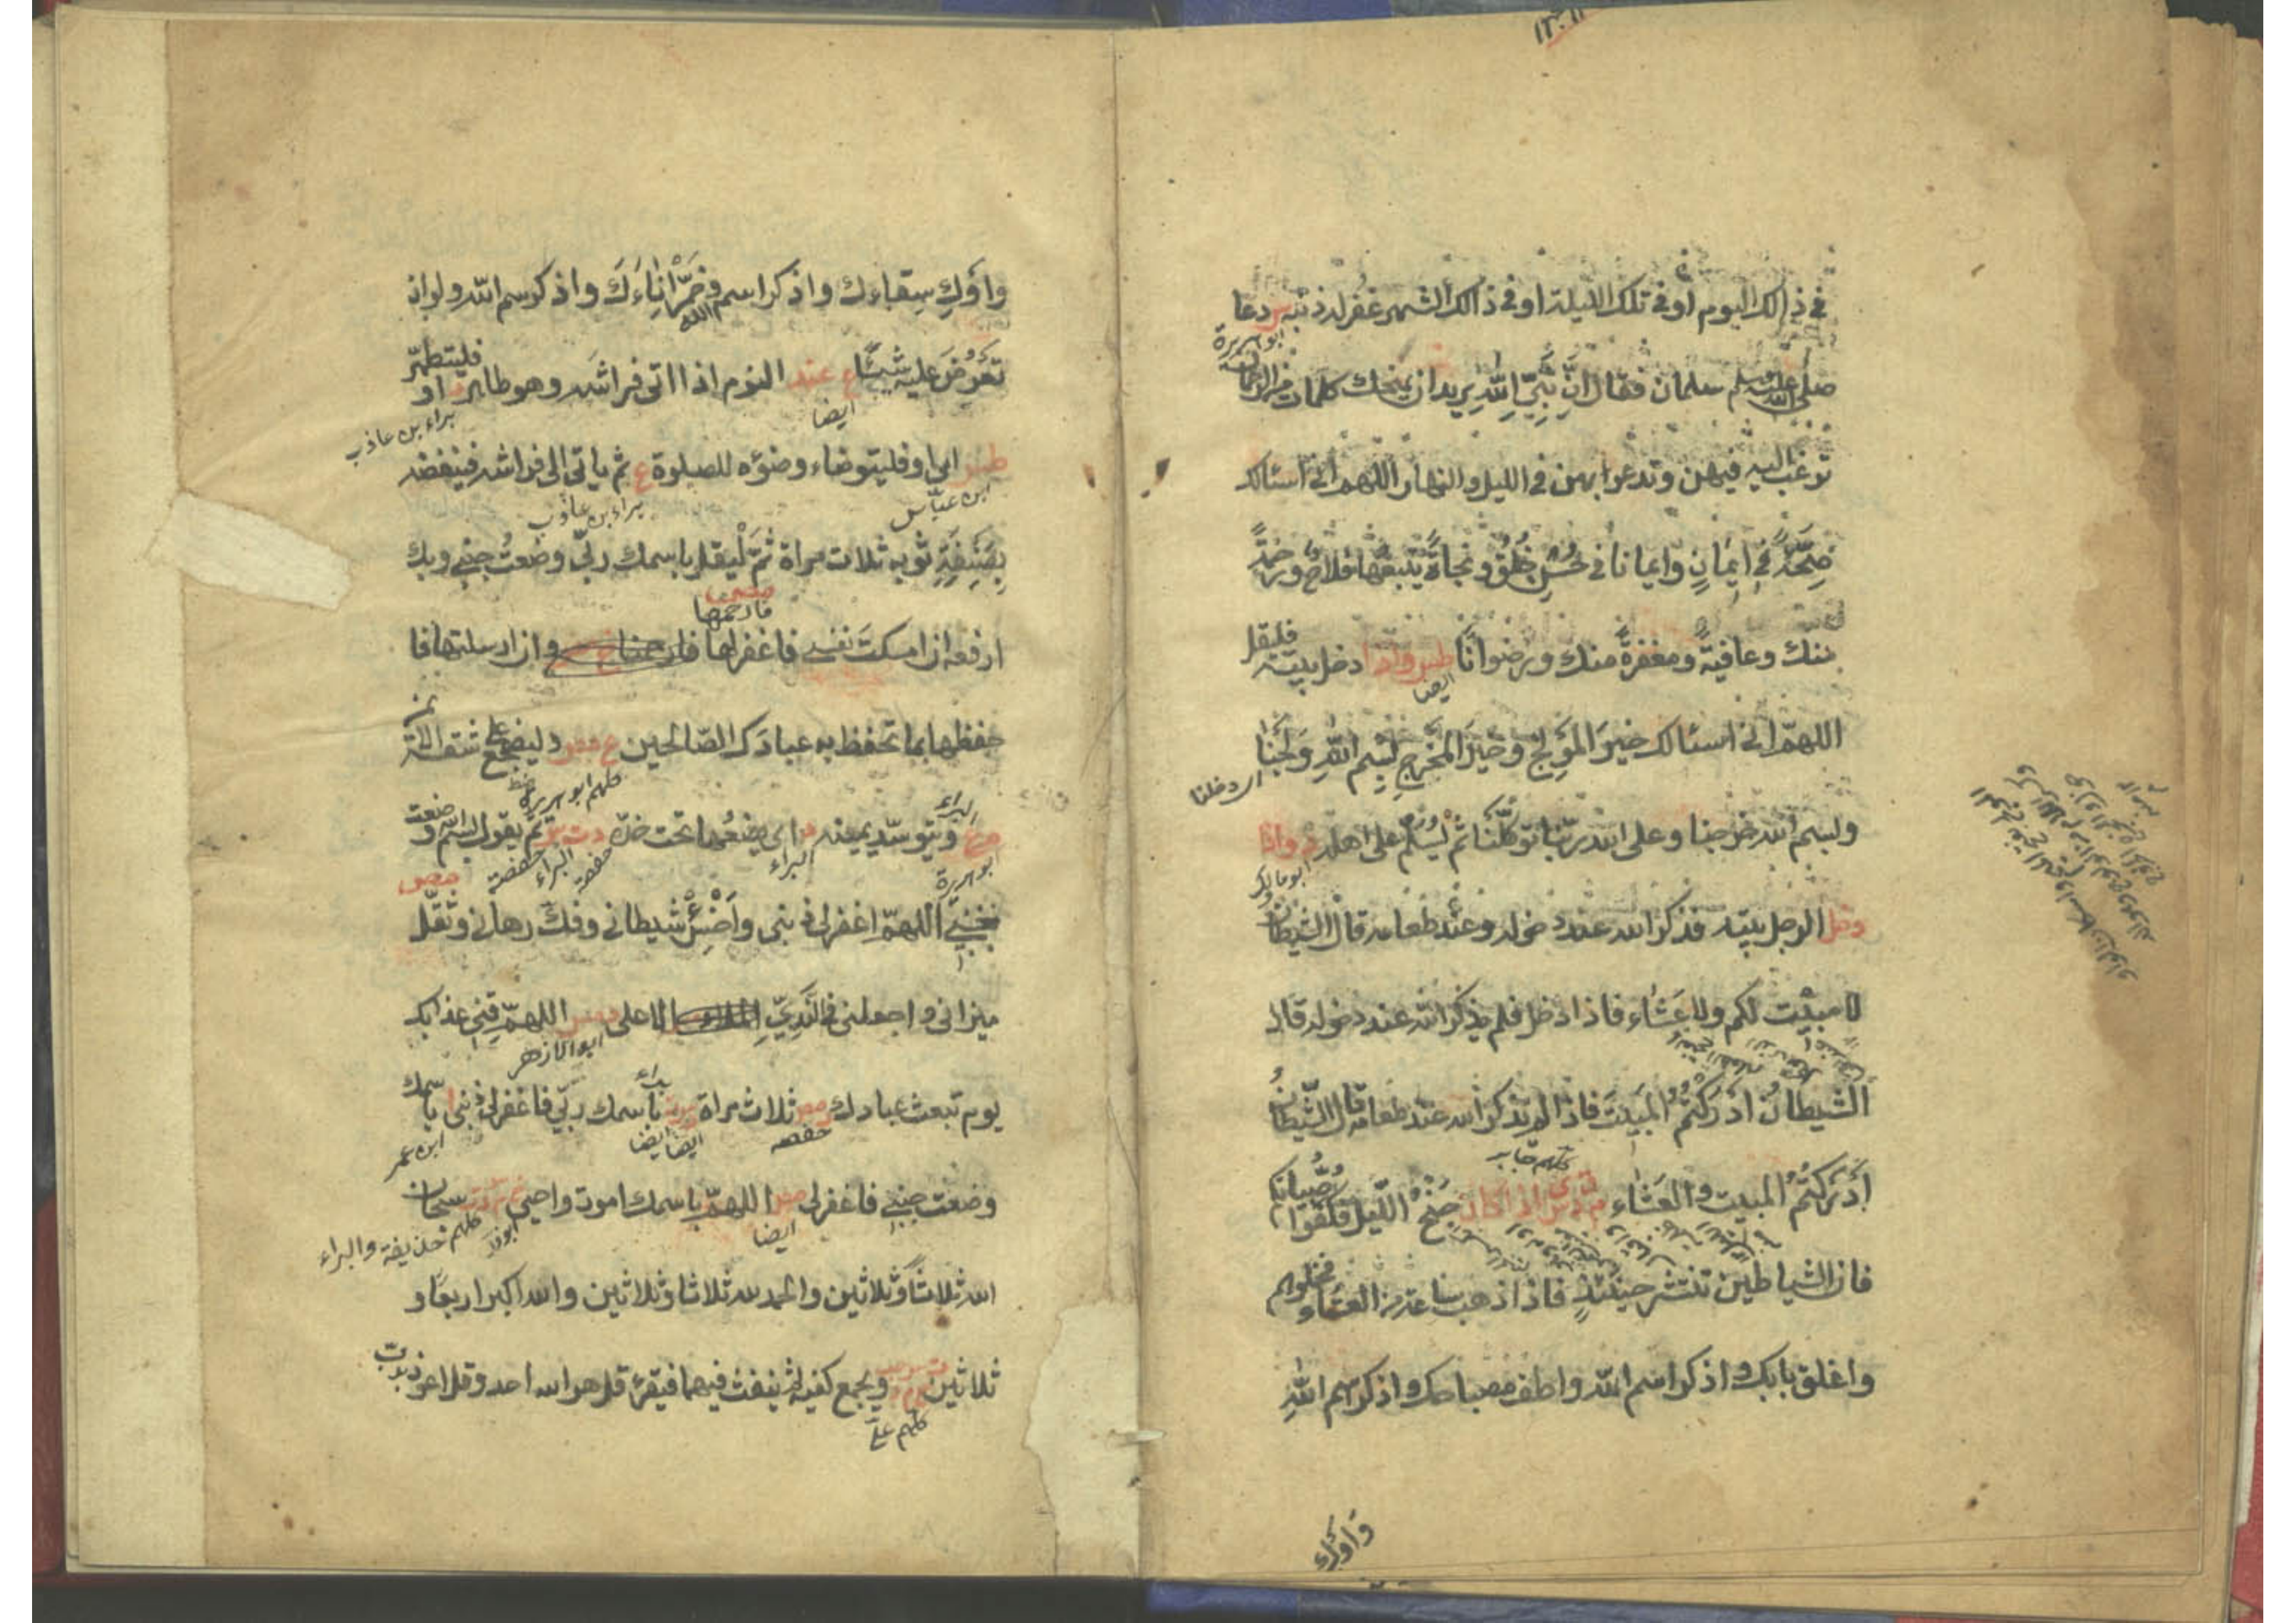 في ذالك اليوم او في تلك الليلة او في ذالك الشهر غفر له ذنبه س دعا
ابو هريرة
صلى الله عليه وسلم سلمان فقال انّ نَبِيَّ اللهِ يريد ان يمنحك كلمات من الرحمان
ترغب اليه فيهن وتدعوا بهن في الليل والنهار اللهم اني اسئالك
صِحَّةً في اِيمَانٍ وايمانا في حُسْنِ خُلُقٍ ونجاةً يَتْبَعُهَا فلاحٌ ورحمةً
منك وعافيةً ومغفرةً منك ورضوانًا طس واذا دخل بيته فليقل
ايضا
اللهمّ اني اسئالك خيرَ المَوْلِجِ وخيرَ المَخْرَجِ بسْمِ اللهِ وَلَجْنَا
اى دخلنا
وبسم الله خرجنا وعلى الله ربّنا توكّلْنَا ثم لْيُسَلِّمْ على اهله د واذا
ابو مالك
دخل الرجل بيته فذكر الله عند دخوله وعند طعامه قال الشيطان
لا مبيت لكم ولا عَشَاء فاذا دخل فلم يذكر الله عند دخوله قال
الشيطانُ ادركتُمُ المَبِيتَ فاذا لم يذكر الله عند طعامه قال الشيطانُ
كلهم جابر
اَدْرَكْتُمُ المبيت والعَشَاء م د س اذا كان جنحُ الليل فكفّوا صُبْيَانَكُم
فان الشياطين تنتشر حينئذٍ فاذا ذهب ساعة من العشاء فخلوهم
واغلق بابك واذكر اسم الله واطف مصباحك واذكر اسم اللهِ
وَاوْكِ
واَوْكِ سِقاءك واذكر اسم الله وخَمِّرْ اِنَاءَكَ واذكر سم الله ولو ان
تَعْرُضَ عليه شيئًا ع عند النوم اذا اتى فراشه وهو طاهر د او فليتطهّر
ايضا
براء بن عاذب
طس اى او فليتوضاء وضوءه للصلوة ع ثم ياتى الى فراشه فينفضه
ابن عبّاس
براء بن عاذب
بِصَنِفَةِ ثوبه ثلاث مراة ثُمّ لْيقل باسمك ربّي وضعتُ جنبي وبك
ارفعه ان امسكتَ نفسي فاغفر لها فارحمها وان ارسلتها فا
حفظها بما تحفظ به عبادك الصّالحين ع مص وليضطجع على شقه الايمن
كلهم ابو هريرة
ويتوسّد يمينه د اى يضعُها تحت خدّه د ت س ثم يقول بسم الله وضعت
ابو هريرة
البراء
حفصة
البراء
حفصة
جنبي اللهمّ اغفر لي ذنبي واخْسَئْ شيطاني وفكّ رهاني وثقّل
ميزاني واجعلني في النَّدِيِّ الاعلى د مس اللهمّ قني عذابك
ابو الازهر
يوم تبعث عبادك مص ثلاث مراة د ت باسمك ربّي فاغفر لي ذنبي باسمك
حفصه
ايضا ايضا
ابن عمر
وضعت جنبي فاغفر لي مص اللهمّ باسمك اموت واحيى خ م د ت سبحان
ايضا
ابو ذر
كلهم حذيفة والبراء
الله ثلاثًا وثلاثين والحمد لله ثلاثا وثلاثين والله اكبر اربعًا و
ثلاثين ويجمع كفيه ثم ينفث فيهما فيقرء قل هو الله احد وقل اعوذ برب
كلهم علي